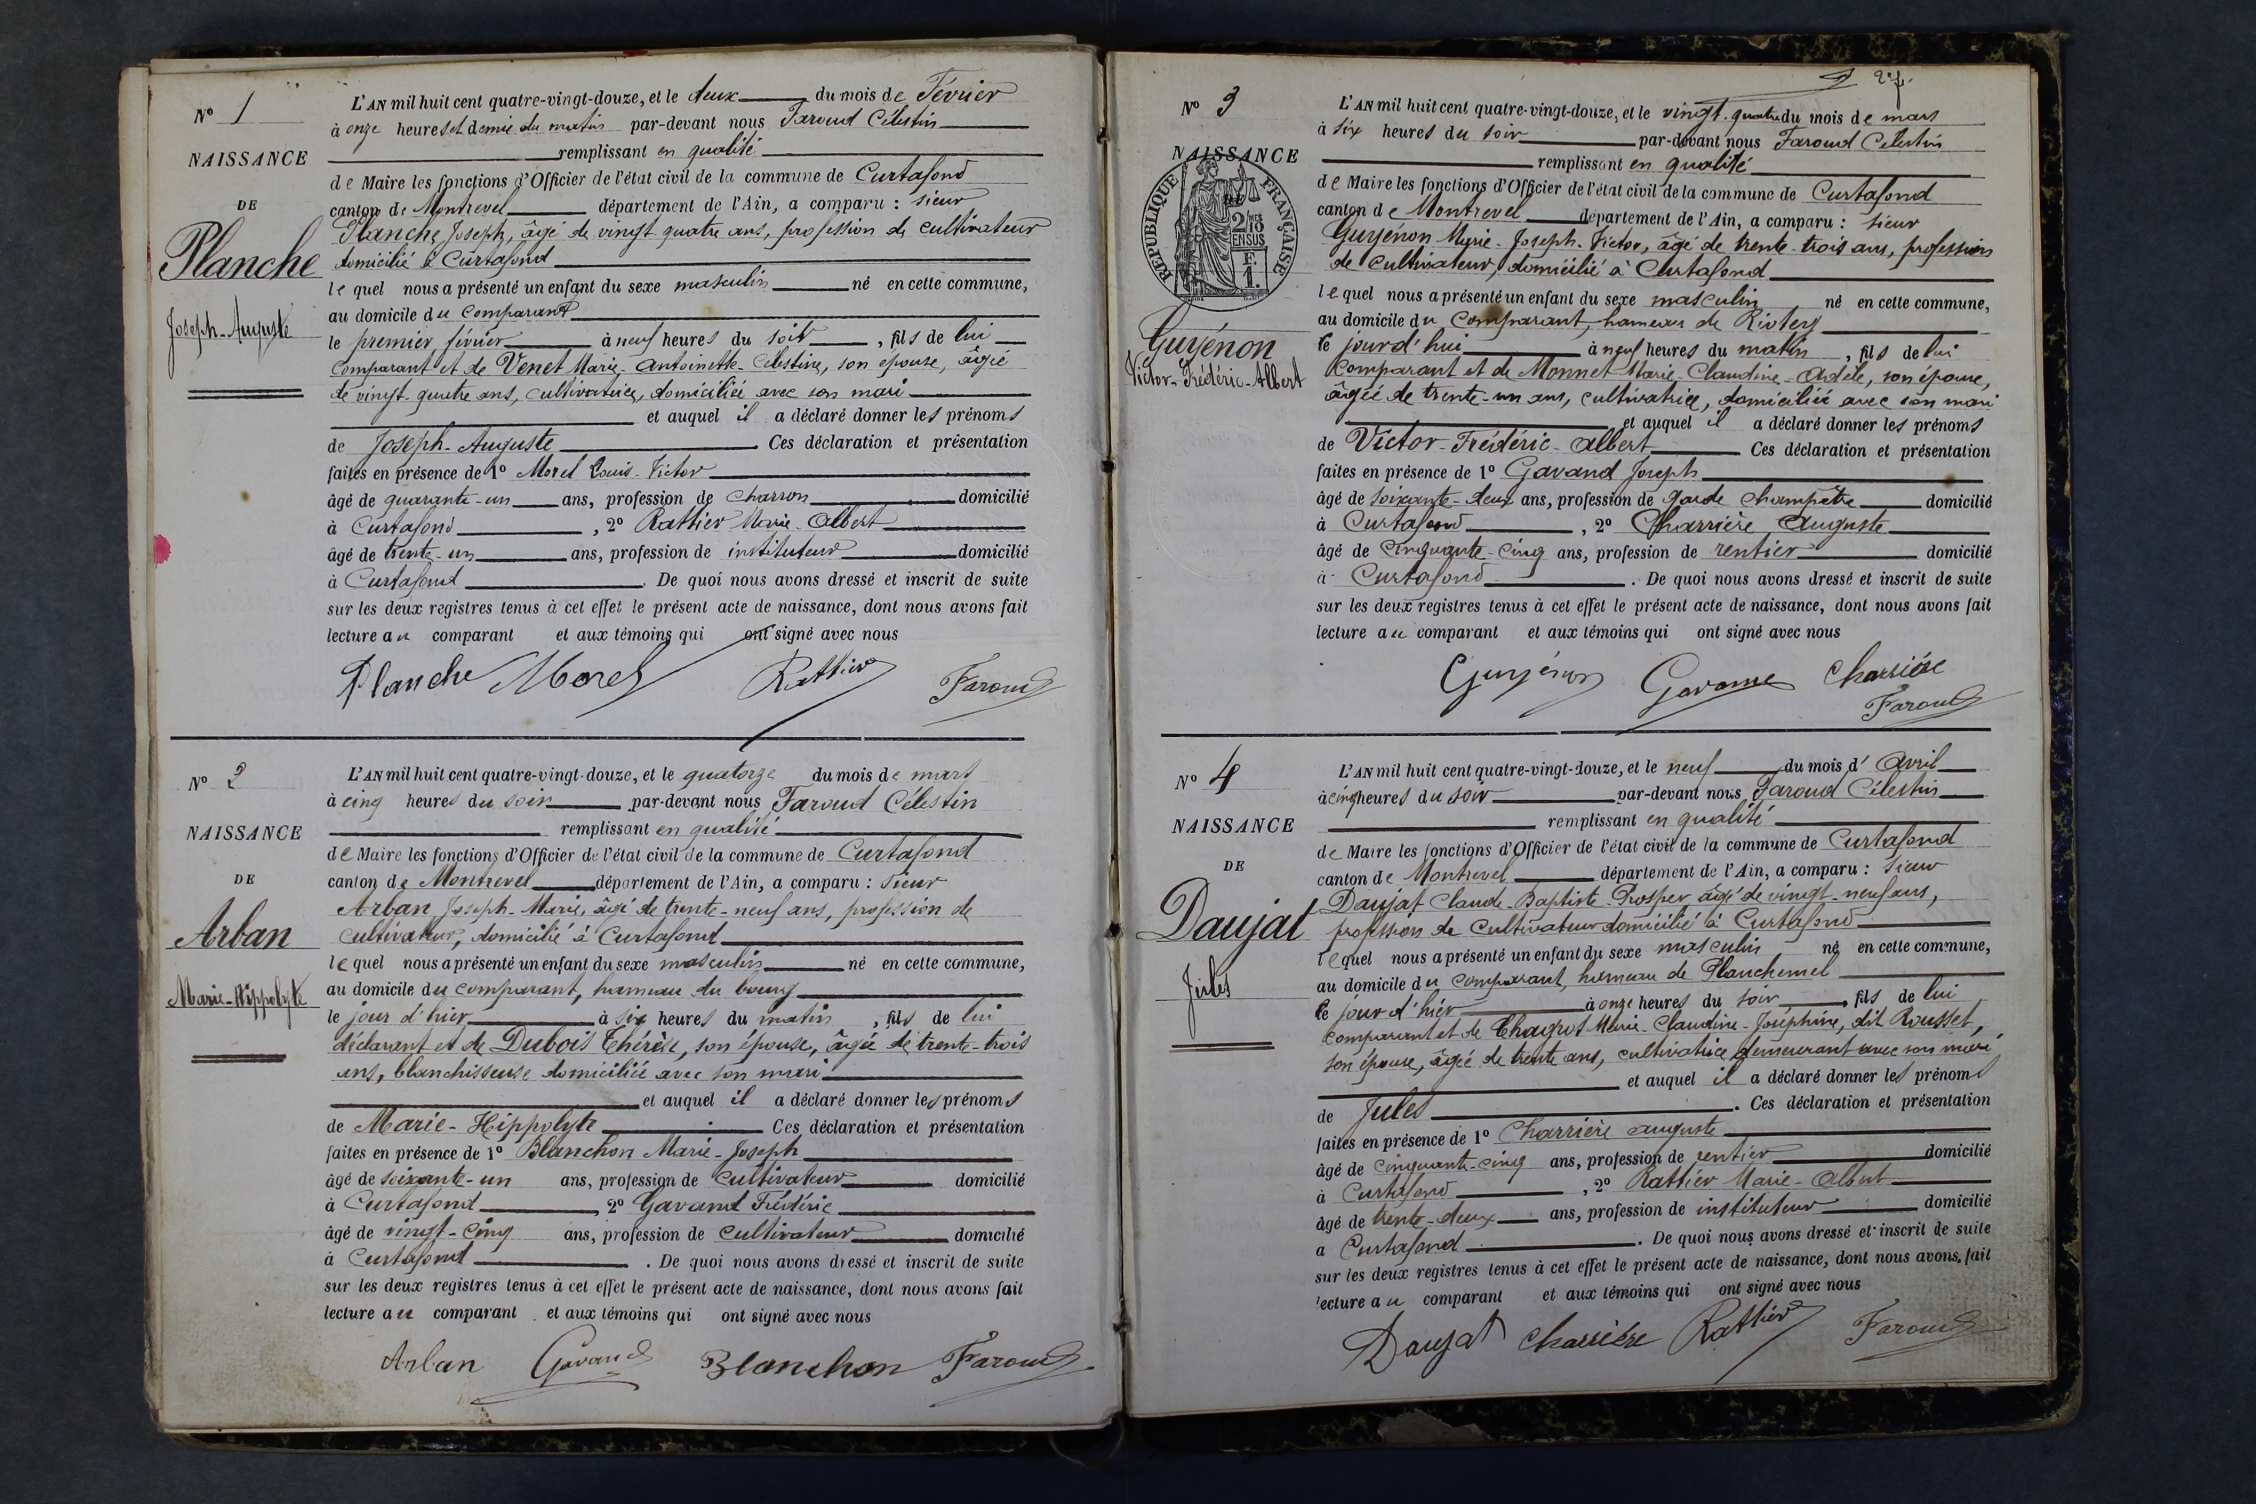 Nº 1
NAISSANCE
DE
Planche
Joseph-Auguste
L'AN mil huit cent quatre-vingt-douze, et le deux du mois de Février
à onze heures et demie du matin par-devant nous Faroud Célestin
remplissant en qualité
de Maire les fonctions d'Officier de l'état civil de la commune de Curtafond
canton de Montrevel département de l'Ain, a comparu : sieur
Planche Joseph, âgé de vingt quatre ans, profession de cultivateur
domicilié à Curtafond
lequel nous a présenté un enfant du sexe masculin né en cette commune,
au domicile du comparant
le premier février à neuf heures du soir, fils de lui
comparant et de Venet Marie-Antoinette-Célestine, son épouse, âgée
de vingt-quatre ans, cultivatrice, domiciliée avec son mari
et auquel il a déclaré donner les prénoms
de Joseph-Auguste Ces déclaration et présentation
faites en présence de 1º Morel Louis-Victor
âgé de quarante-un ans, profession de charron domicilié
à Curtafond, 2º Rattier Marie-Albert
âgé de trente-un ans, profession de instituteur domicilié
à Curtafond. De quoi nous avons dressé et inscrit de suite
sur les deux registres tenus à cet effet le présent acte de naissance, dont nous avons fait
lecture au comparant et aux témoins qui ont signé avec nous
Planche Morel Rattier Faroud
Nº 2
NAISSANCE
DE
Arban
Marie-Hippolyte
L'AN mil huit cent quatre-vingt-douze, et le quatorze du mois de mars
à cinq heures du soir par-devant nous Faroud Célestin
remplissant en qualité
de Maire les fonctions d'Officier de l'état civil de la commune de Curtafond
canton de Montrevel département de l'Ain, a comparu : sieur
Arban Joseph-Marie, âgé de trente-neuf ans, profession de
cultivateur, domicilié à Curtafond
lequel nous a présenté un enfant du sexe masculin né en cette commune,
au domicile du comparant, hameau du bourg
le jour d'hier à six heures du matin, fils de lui
déclarant et de Dubois Thérèse, son épouse, âgée de trente-trois
ans, blanchisseuse domiciliée avec son mari
et auquel il a déclaré donner les prénoms
de Marie-Hippolyte Ces déclaration et présentation
faites en présence de 1º Blanchon Marie-Joseph
âgé de soixante-un ans, profession de cultivateur domicilié
à Curtafond, 2º Gavand Frédéric
âgé de vingt-cinq ans, profession de cultivateur domicilié
à Curtafond. De quoi nous avons dressé et inscrit de suite
sur les deux registres tenus à cet effet le présent acte de naissance, dont nous avons fait
lecture au comparant et aux témoins qui ont signé avec nous
Arban Gavand Blanchon Faroud
27.
Nº 3
NAISSANCE
RÉPUBLIQUE FRANÇAISE
2/10
EN SUS
F.
1.
Guyénon
Victor-Frédéric-Albert
L'AN mil huit cent quatre-vingt-douze, et le vingt-quatre du mois de mars
à six heures du soir par-devant nous Faroud Célestin
remplissant en qualité
de Maire les fonctions d'Officier de l'état civil de la commune de Curtafond
canton de Montrevel département de l'Ain, a comparu : sieur
Guyénon Marie-Joseph-Victor, âgé de trente-trois ans, profession
de cultivateur, domicilié à Curtafond
lequel nous a présenté un enfant du sexe masculin né en cette commune,
au domicile du comparant, hameau de
le jour d'hui à neuf heures du matin, fils de lui
comparant et de Monnet Marie-Claudine-Adèle, son épouse,
âgée de trente-un ans, cultivatrice, domiciliée avec son mari
et auquel il a déclaré donner les prénoms
de Victor-Frédéric-Albert Ces déclaration et présentation
faites en présence de 1º Gavand Joseph
âgé de soixante-deux ans, profession de garde champêtre domicilié
à Curtafond, 2º Charrière Auguste
âgé de cinquante-cinq ans, profession de rentier domicilié
à Curtafond. De quoi nous avons dressé et inscrit de suite
sur les deux registres tenus à cet effet le présent acte de naissance, dont nous avons fait
lecture au comparant et aux témoins qui ont signé avec nous
Guyénon Charrière
Faroud
Nº 4
NAISSANCE
DE
Daujat
Jules
L'AN mil huit cent quatre-vingt-douze, et le neuf du mois d'Avril
à cinq heures du soir par-devant nous Faroud Célestin
remplissant en qualité
de Maire les fonctions d'Officier de l'état civil de la commune de Curtafond
canton de Montrevel département de l'Ain, a comparu : sieur
Daujat Claude-Baptiste-Prosper âgé de vingt-neuf ans,
profession de cultivateur domicilié à Curtafond
lequel nous a présenté un enfant du sexe masculin né en cette commune,
au domicile du comparant, hameau de Planchemel
le jour d'hier à onze heures du soir, fils de lui
comparant et de Chagrot Marie-Claudine-Joséphine, dit Rousset,
son épouse, âgée de trente ans, cultivatrice demeurant avec son mari
et auquel il a déclaré donner les prénoms
de Jules. Ces déclaration et présentation
faites en présence de 1º Charrière auguste
âgé de cinquante-cinq ans, profession de rentier domicilié
à Curtafond, 2º Rattier Marie-Albert
âgé de trente-deux ans, profession de instituteur domicilié
a Curtafond. De quoi nous avons dressé et inscrit de suite
sur les deux registres tenus à cet effet le présent acte de naissance, dont nous avons fait
lecture au comparant et aux témoins qui ont signé avec nous
Daujat Charrière Rattier Faroud